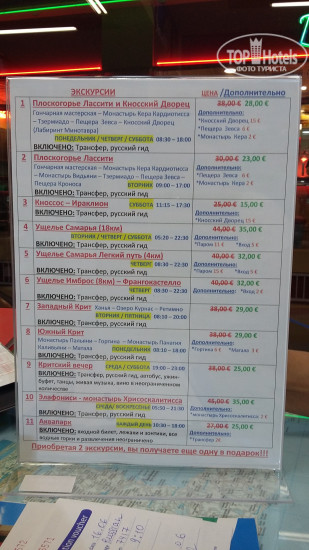 TOPHotels
ФОТО ТУРИСТА
ЭКСКУРСИИ ЦЕНА /Дополнительно
1 Плоскогорье Лассити и Кносский Дворец 38,00 € 28,00 €
Гончарная мастерская – Монастырь Кера Кардиотисса Дополнительно:
– Тзермиадо – Пещера Зевса – Кносский Дворец *Кносский Дворец 15 €
(Лабиринт Минотавра) *Пещера Зевса 4 €
ПОНЕДЕЛЬНИК / ЧЕТВЕРГ / СУББОТА 08:30 – 18:00 *Монастырь Кера 2 €
ВКЛЮЧЕНО: Трансфер, русский гид
2 Плоскогорье Лассити 30,00 € 23,00 €
Гончарная мастерская – Монастырь Кера Кардиотисса – Дополнительно:
Монастырь Видьяни – Тзермиадо – Пещера Зевса – *Пещера Зевса 6 €
Пещера Кроноса ВТОРНИК 09:00 – 17:00 *Монастырь Кера 2 €
ВКЛЮЧЕНО: Трансфер, русский гид
3 Кноссос – Ираклион СУББОТА 11:15 – 17:30 25,00 € 15,00 €
ВКЛЮЧЕНО: Трансфер, русский гид Дополнительно:
*Кносский Дворец 15 €
4 Ущелье Самарья (18км) 44,00 € 35,00 €
ВТОРНИК / ЧЕТВЕРГ / СУББОТА 05:20 – 22:30 Дополнительно:
ВКЛЮЧЕНО: Трансфер, русский гид *Паром 11 € *Вход 5 €
5 Ущелье Самарья Легкий путь (4км) 40,00 € 32,00 €
ЧЕТВЕРГ 08:30 – 22:30 Дополнительно:
ВКЛЮЧЕНО: Трансфер, русский гид *Паром *Вход 5 €
6 Ущелье Имброс (8км) – Франгокастелло 40,00 € 32,00 €
ЧЕТВЕРГ 08:30 – 22:30 Дополнительно:
ВКЛЮЧЕНО: Трансфер, русский гид *Вход 2 €
7 Западный Крит Ханья – Озеро Курнас – Ретимно 38,00 € 29,00 €
ВТОРНИК / ПЯТНИЦА 08:10 – 20:00
ВКЛЮЧЕНО: Трансфер, русский гид
8 Южный Крит 38,00 € 29,00 €
Монастырь Пальяни – Гортина – Монастырь Панагия Дополнительно:
Каливьяни – Матала ПОНЕДЕЛЬНИК 08:10 – 18:00 *Гортина 6 €
ВКЛЮЧЕНО: Трансфер, русский гид
9 Критский вечер СРЕДА / СУББОТА 19:00 – 23:00 38,00 € 25,00 €
ВКЛЮЧЕНО: Трансфер, русский гид, автобус, ужин-
буфет, танцы, живая музыка, вино в неограниченном
количестве
10 Элафониси – монастырь Хрисоскалитисса 48,00 € 35,00 €
СРЕДА/ ВОСКРЕСЕНЬЕ 05:50 – 21:00 Дополнительно:
ВКЛЮЧЕНО: Трансфер, русский гид *Монастырь Хрисоскалитисса 2 €
11 Аквапарк КАЖДЫЙ ДЕНЬ 10:30 – 18:00 27,00 € 25,00 €
ВКЛЮЧЕНО: входной билет, лежаки и зонтики, все Дополнительно:
водные горки и развлечения неограниченно *Трансфер
Приобретая 2 экскурсии, вы получаете еще одну в подарок!!!
voucher